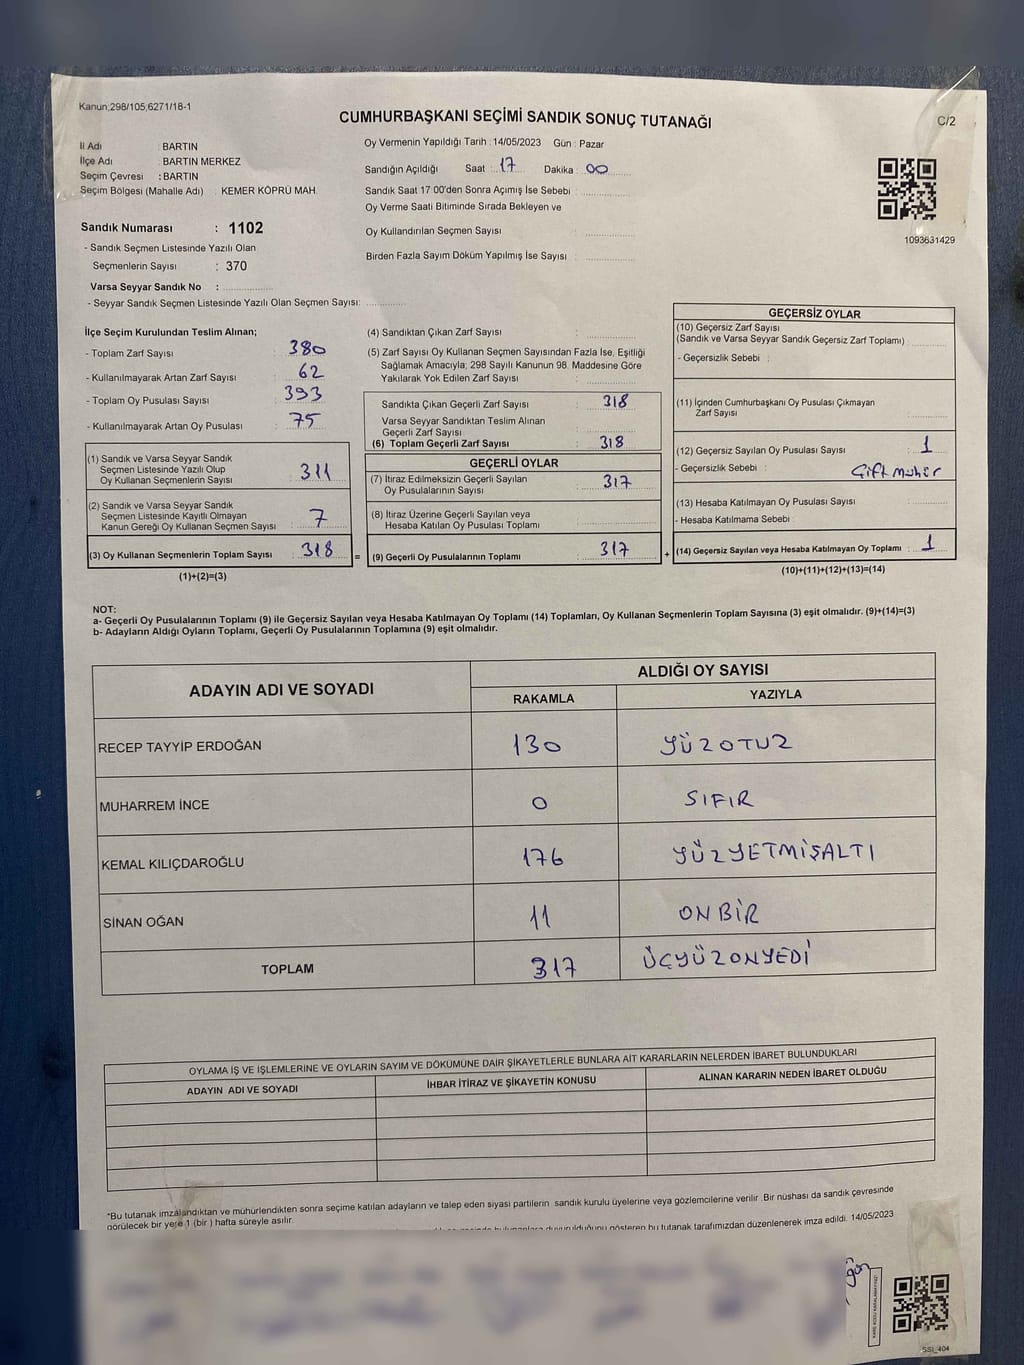 Kanun;298/105,6271/18-1
CUMHURBAŞKANI SEÇİMİ SANDIK SONUÇ TUTANAĞI
C/2
İl Adı : BARTIN
İlçe Adı : BARTIN MERKEZ
Seçim Çevresi : BARTIN
Seçim Bölgesi (Mahalle Adı) : KEMER KÖPRÜ MAH.
Oy Vermenin Yapıldığı Tarih : 14/05/2023 Gün : Pazar
Sandığın Açıldığı Saat : 17 Dakika : 00
Sandık Saat 17:00'den Sonra Açımış İse Sebebi :
Oy Verme Saati Bitiminde Sırada Bekleyen ve
Oy Kullandırılan Seçmen Sayısı :
Birden Fazla Sayım Döküm Yapılmış İse Sayısı :
1093631429
Sandık Numarası : 1102
- Sandık Seçmen Listesinde Yazılı Olan
Seçmenlerin Sayısı : 370
Varsa Seyyar Sandık No :
- Seyyar Sandık Seçmen Listesinde Yazılı Olan Seçmen Sayısı:
İlçe Seçim Kurulundan Teslim Alınan;
- Toplam Zarf Sayısı : 380
- Kullanılmayarak Artan Zarf Sayısı : 62
- Toplam Oy Pusulası Sayısı : 393
- Kullanılmayarak Artan Oy Pusulası : 75
(1) Sandık ve Varsa Seyyar Sandık
Seçmen Listesinde Yazılı Olup
Oy Kullanan Seçmenlerin Sayısı : 311
(2) Sandık ve Varsa Seyyar Sandık
Seçmen Listesinde Kayıtlı Olmayan
Kanun Gereği Oy Kullanan Seçmen Sayısı : 7
(3) Oy Kullanan Seçmenlerin Toplam Sayısı : 318
(1)+(2)=(3)
(4) Sandıktan Çıkan Zarf Sayısı :
(5) Zarf Sayısı Oy Kullanan Seçmen Sayısından Fazla İse, Eşitliği
Sağlamak Amacıyla; 298 Sayılı Kanunun 98. Maddesine Göre
Yakılarak Yok Edilen Zarf Sayısı :
Sandıkta Çıkan Geçerli Zarf Sayısı : 318
Varsa Seyyar Sandıktan Teslim Alınan
Geçerli Zarf Sayısı :
(6) Toplam Geçerli Zarf Sayısı : 318
GEÇERLİ OYLAR
(7) İtiraz Edilmeksizin Geçerli Sayılan
Oy Pusulalarının Sayısı : 317
(8) İtiraz Üzerine Geçerli Sayılan veya
Hesaba Katılan Oy Pusulası Toplamı :
= (9) Geçerli Oy Pusulalarının Toplamı : 317 +
GEÇERSİZ OYLAR
(10) Geçersiz Zarf Sayısı
(Sandık ve Varsa Seyyar Sandık Geçersiz Zarf Toplamı) :
- Geçersizlik Sebebi :
(11) İçinden Cumhurbaşkanı Oy Pusulası Çıkmayan
Zarf Sayısı :
(12) Geçersiz Sayılan Oy Pusulası Sayısı : 1
- Geçersizlik Sebebi : Çift Mühür
(13) Hesaba Katılmayan Oy Pusulası Sayısı :
- Hesaba Katılmama Sebebi :
(14) Geçersiz Sayılan veya Hesaba Katılmayan Oy Toplamı : 1
(10)+(11)+(12)+(13)=(14)
NOT:
a- Geçerli Oy Pusulalarının Toplamı (9) ile Geçersiz Sayılan veya Hesaba Katılmayan Oy Toplamı (14) Toplamları, Oy Kullanan Seçmenlerin Toplam Sayısına (3) eşit olmalıdır. (9)+(14)=(3)
b- Adayların Aldığı Oyların Toplamı, Geçerli Oy Pusulalarının Toplamına (9) eşit olmalıdır.
ADAYIN ADI VE SOYADI
ALDIĞI OY SAYISI
RAKAMLA YAZIYLA
RECEP TAYYİP ERDOĞAN 130 YÜZOTUZ
MUHARREM İNCE 0 SIFIR
KEMAL KILIÇDAROĞLU 176 YÜZYETMİŞALTI
SİNAN OĞAN 11 ONBİR
TOPLAM 317 ÜÇYÜZONYEDİ
OYLAMA İŞ VE İŞLEMLERİNE VE OYLARIN SAYIM VE DÖKÜMÜNE DAİR ŞİKAYETLERLE BUNLARA AİT KARARLARIN NELERDEN İBARET BULUNDUKLARI
ADAYIN ADI VE SOYADI İHBAR İTİRAZ VE ŞİKAYETİN KONUSU ALINAN KARARIN NEDEN İBARET OLDUĞU
*Bu tutanak imzalandıktan ve mühürlendikten sonra seçime katılan adayların ve talep eden siyasi partilerin sandık kurulu üyelerine veya gözlemcilerine verilir .Bir nüshası da sandık çevresinde
görülecek bir yere 1 (bir ) hafta süreyle asılır.
duyurulduğunu gösteren bu tutanak tarafımızdan düzenlenerek imza edildi. 14/05/2023
SSI_404